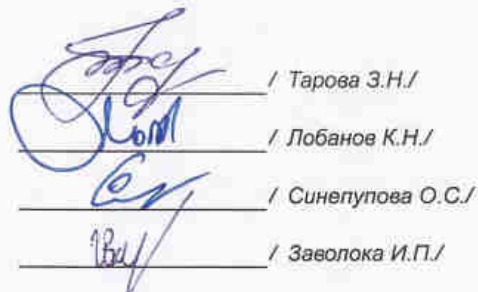 / Тарова З.Н./
/ Лобанов К.Н./
/ Синепупова О.С./
/ Заволока И.П./